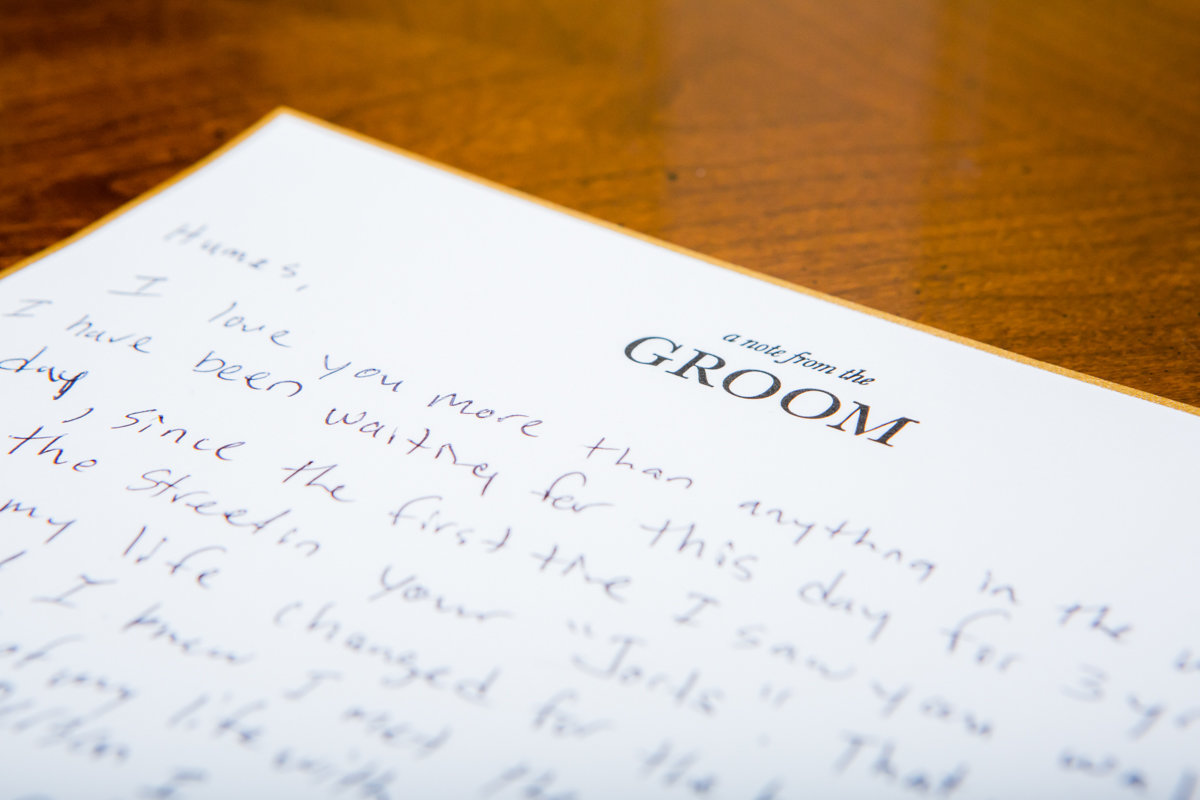 a note from the
GROOM
Humes,
I love you more than anything in the
I have been waiting for this day for 3
day, since the first time I saw you
the street in your "Jorts" That
my life changed for the
I knew I met the
of my life with